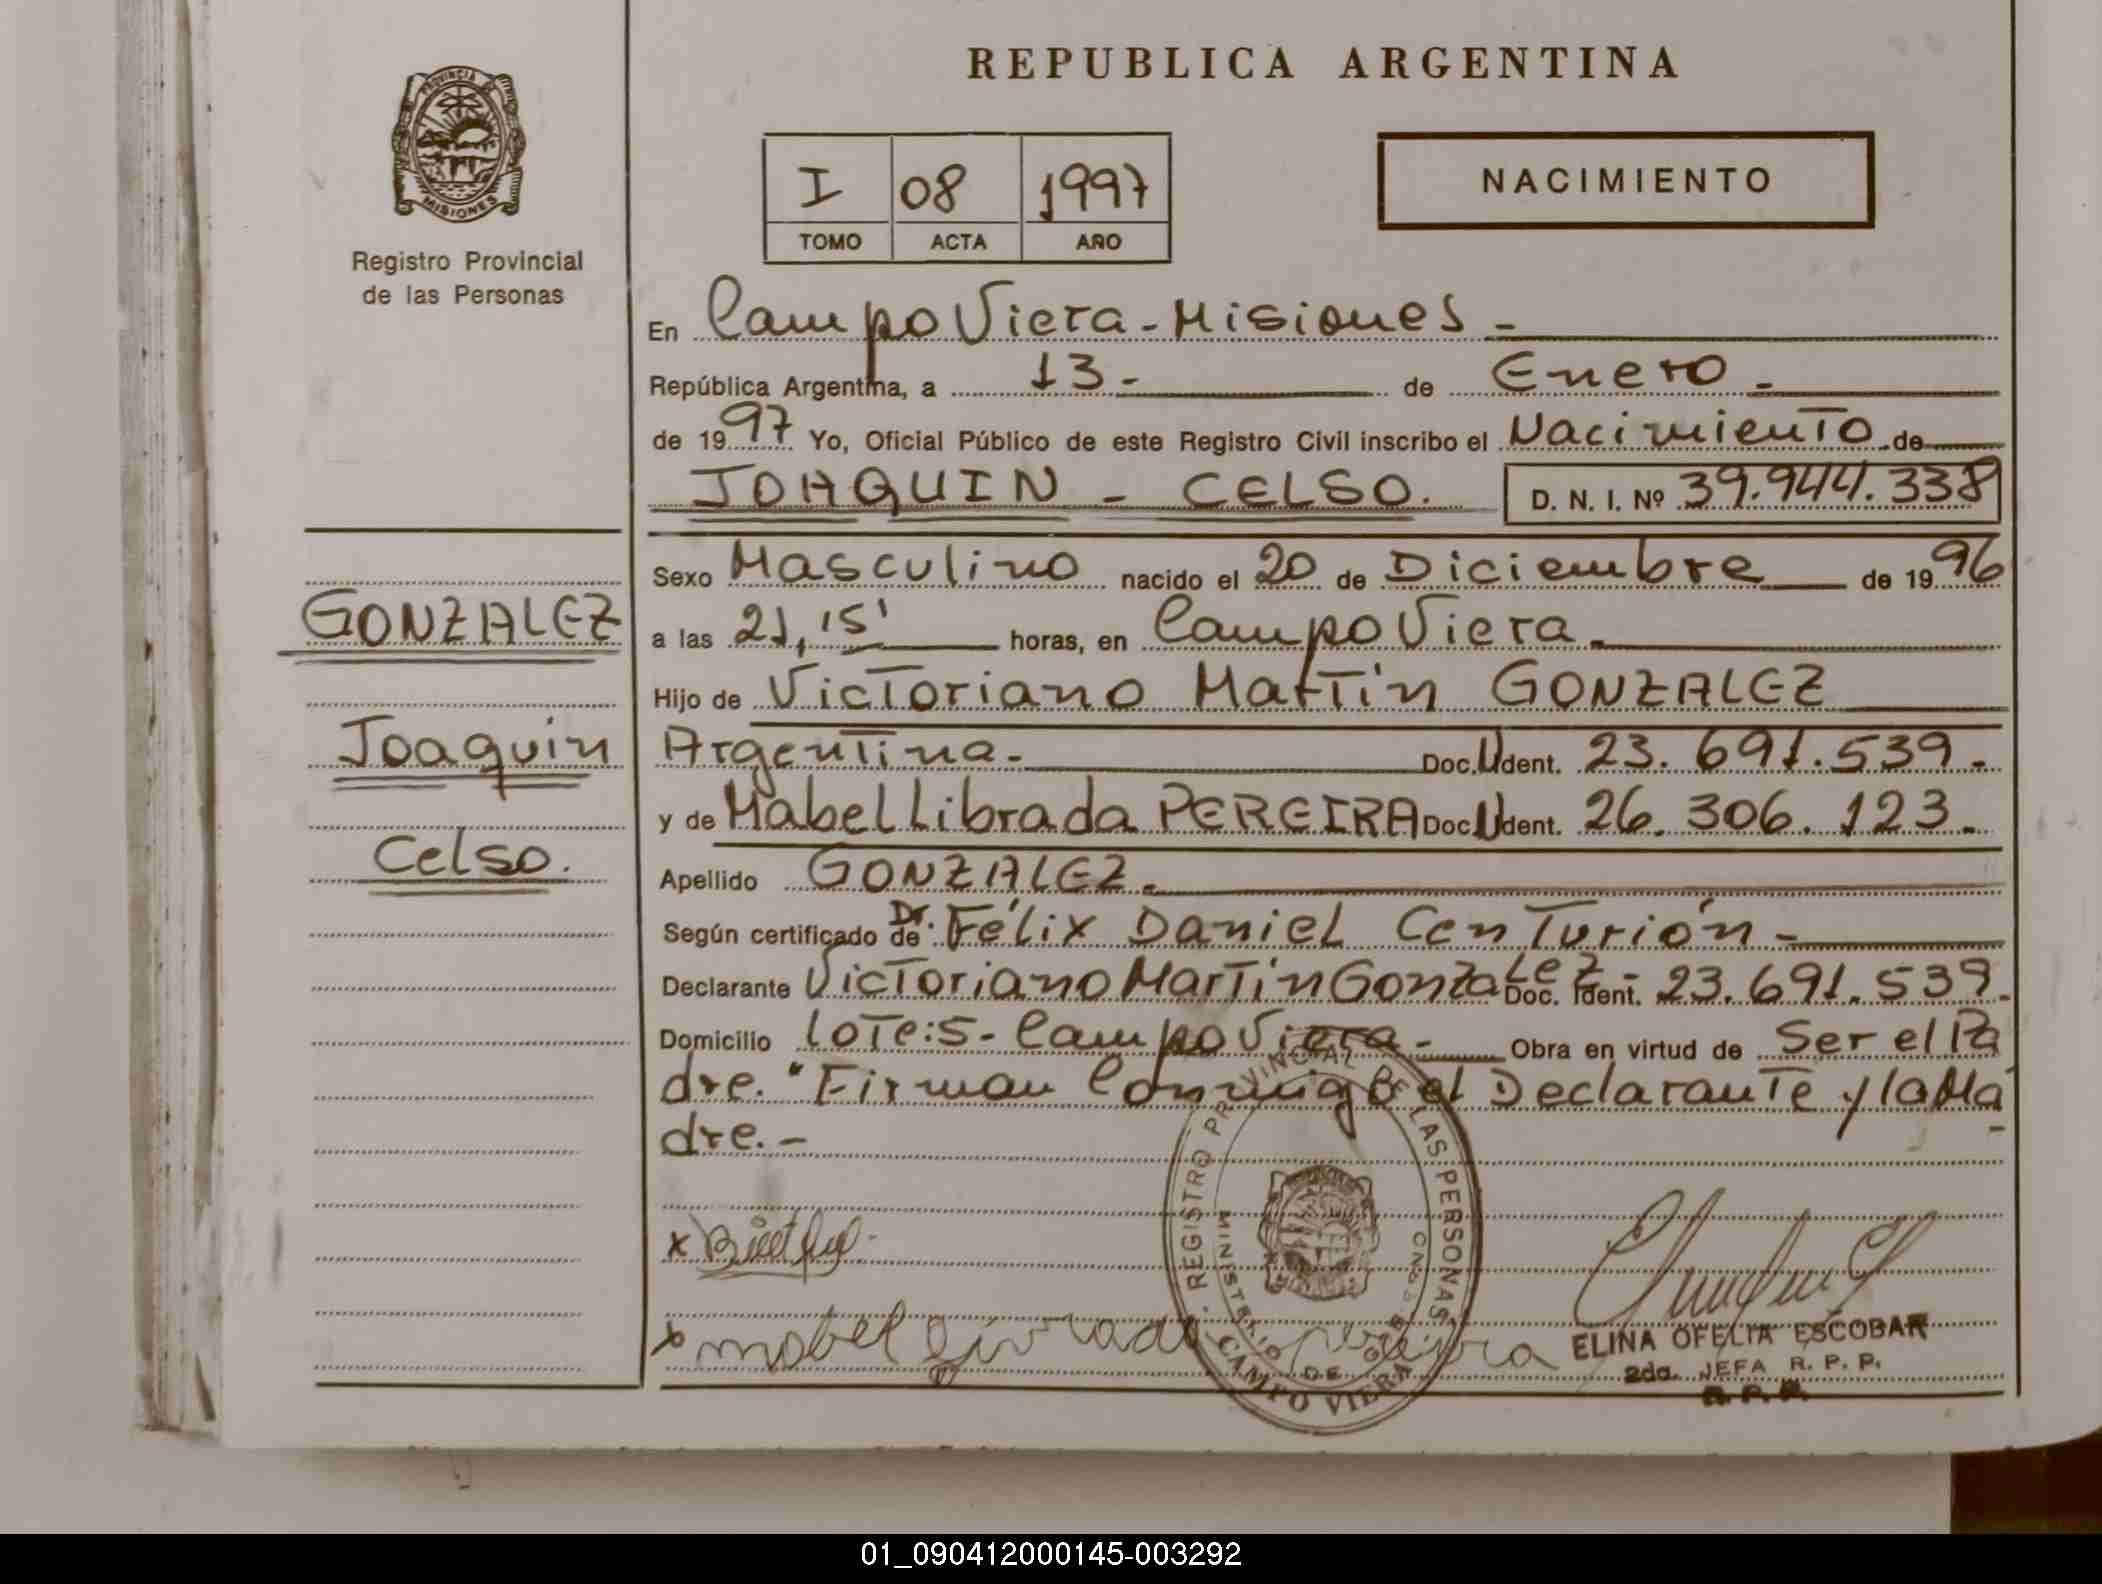 REPUBLICA ARGENTINA
PROVINCIA DE
MISIONES
Registro Provincial
de las Personas
I 08 1997
TOMO ACTA AÑO
NACIMIENTO
En Campo Viera - Misiones -
República Argentina, a 13 - de Enero -
de 1997 Yo, Oficial Público de este Registro Civil inscribo el Nacimiento de
JOAQUIN - CELSO. D. N. I. Nº 39.944.338
Sexo Masculino nacido el 20 de Diciembre de 1996
GONZALEZ
a las 21,15' horas, en Campo Viera -
Hijo de Victoriano Martín GONZALEZ
Joaquin
Argentina - Doc. U Ident. 23.691.539 -
y de Mabel Librada PEREIRA Doc. U Ident. 26.306.123 -
Celso.
Apellido GONZALEZ -
Según certificado de Dr. Félix Daniel Centurión -
Declarante Victoriano Martín Gonzalez - Doc. Ident. 23.691.539 -
Domicilio Lote: 5 - Campo Viera - Obra en virtud de Ser el Pa
dre. " Firman Conmigo el Declarante y la Ma
dre. -
x
x mabel pereira
REGISTRO PROVINCIAL DE LAS PERSONAS
MINISTERIO DE GOB.
CAMPO VIERA
ELINA OFELIA ESCOBAR
2da. JEFA R. P. P.
R. P. P.
01_090412000145-003292